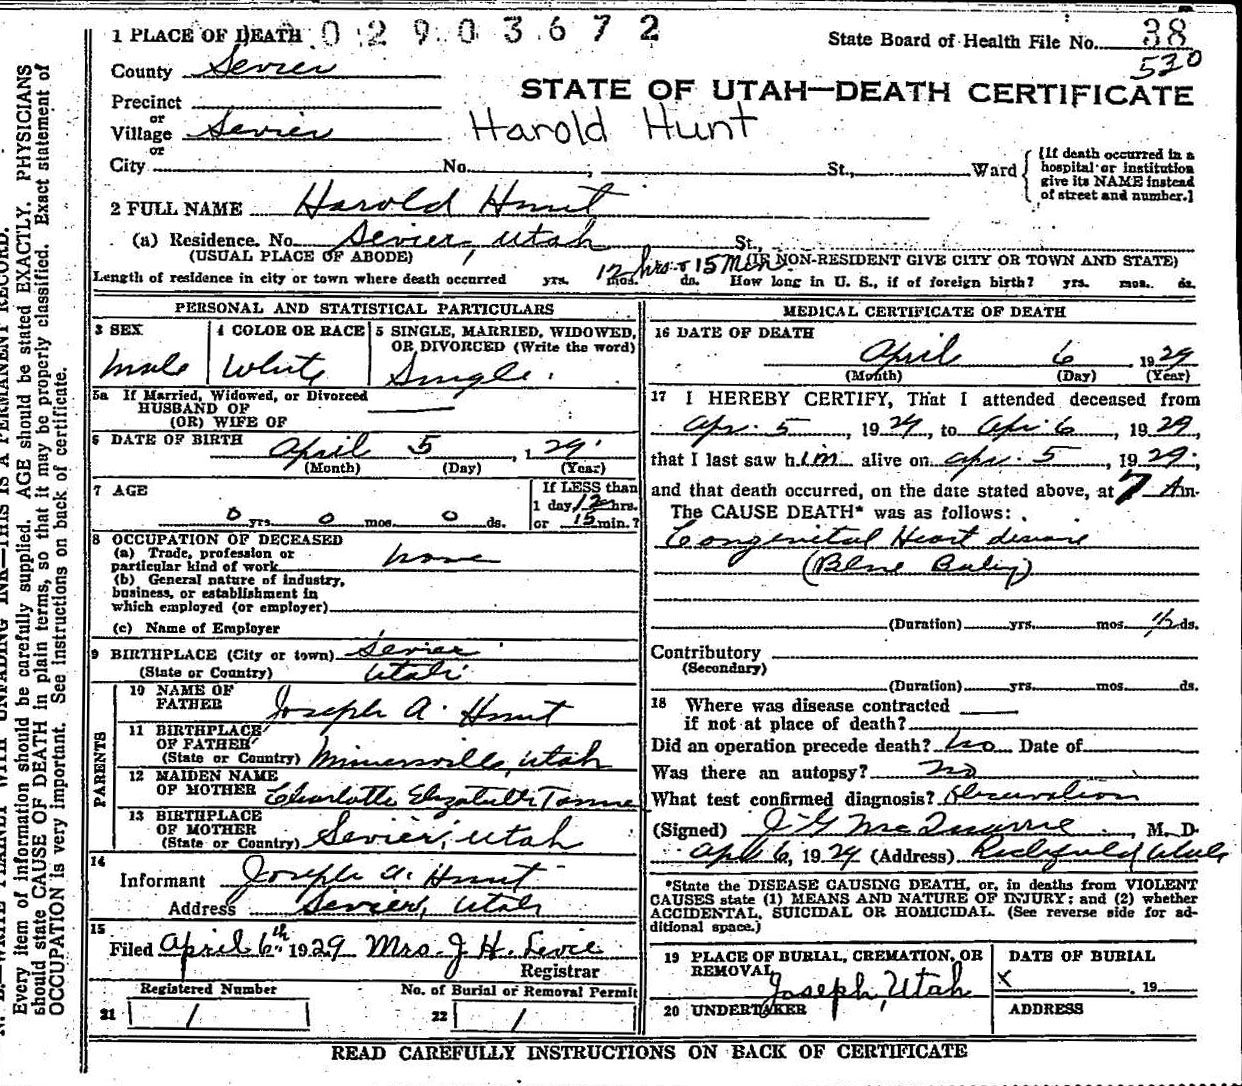 1 PLACE OF DEATH 0 2 9 0 3 6 7 2
State Board of Health File No. 38
530
County Sevier
STATE OF UTAH—DEATH CERTIFICATE
Precinct
or
Village Sevier
Harold Hunt
or
City No. , St., Ward
[If death occurred in a
hospital or institution
give its NAME instead
of street and number.]
2 FULL NAME Harold Hunt
(a) Residence. No. Sevier, Utah St.,
(USUAL PLACE OF ABODE) (IF NON-RESIDENT GIVE CITY OR TOWN AND STATE)
Length of residence in city or town where death occurred yrs. mos. ds. How long in U. S., if of foreign birth? yrs. mos. ds.
12 hrs & 15 Min
PERSONAL AND STATISTICAL PARTICULARS
3 SEX
Male
4 COLOR OR RACE
White
5 SINGLE, MARRIED, WIDOWED,
OR DIVORCED (Write the word)
Single.
5a If Married, Widowed, or Divorced
HUSBAND OF
(OR) WIFE OF
6 DATE OF BIRTH April 5, 1 29
(Month) (Day) (Year)
7 AGE
0 yrs. 0 mos. 0 ds.
If LESS than
1 day 12 hrs.
or 15 min.?
8 OCCUPATION OF DECEASED
(a) Trade, profession or
particular kind of work none
(b) General nature of industry,
business, or establishment in
which employed (or employer)
(c) Name of Employer
9 BIRTHPLACE (City or town) Sevier
(State or Country) Utah
PARENTS
10 NAME OF
FATHER Joseph A. Hunt
11 BIRTHPLACE
OF FATHER
(State or Country) Minersville, Utah
12 MAIDEN NAME
OF MOTHER Charlotte Elizabeth
13 BIRTHPLACE
OF MOTHER
(State or Country) Sevier, Utah
14
Informant Joseph A. Hunt
Address Sevier, Utah
15
Filed April 6th 1929 Mrs. J. H. Levie
Registrar
Registered Number No. of Burial or Removal Permit
21 1 22 1
MEDICAL CERTIFICATE OF DEATH
16 DATE OF DEATH
April 6, 1929
(Month) (Day) (Year)
17 I HEREBY CERTIFY, That I attended deceased from
Apr. 5, 1929, to Apr. 6, 1929,
that I last saw him alive on Apr. 5, 1929;
and that death occurred, on the date stated above, at 7 Am.
The CAUSE DEATH* was as follows:
Congenital Heart disease
(Blue Baby)
(Duration) yrs. mos. 1/2 ds.
Contributory
(Secondary)
(Duration) yrs. mos. ds.
18 Where was disease contracted
if not at place of death?
Did an operation precede death? No Date of
Was there an autopsy? No
What test confirmed diagnosis? Observation
(Signed) J. G. McQuarrie, M. D.
Apr 6, 1929 (Address) Richfield Utah
*State the DISEASE CAUSING DEATH, or, in deaths from VIOLENT
CAUSES state (1) MEANS AND NATURE OF INJURY; and (2) whether
ACCIDENTAL, SUICIDAL OR HOMICIDAL. (See reverse side for ad-
ditional space.)
19 PLACE OF BURIAL, CREMATION, OR
REMOVAL
Joseph, Utah
DATE OF BURIAL
x , 19
20 UNDERTAKER
ADDRESS
READ CAREFULLY INSTRUCTIONS ON BACK OF CERTIFICATE
N. B.—WRITE PLAINLY WITH UNFADING INK—THIS IS A PERMANENT RECORD.
Every item of information should be carefully supplied. AGE should be stated EXACTLY. PHYSICIANS
should state CAUSE OF DEATH in plain terms, so that it may be properly classified. Exact statement of
OCCUPATION is very important. See instructions on back of certificate.